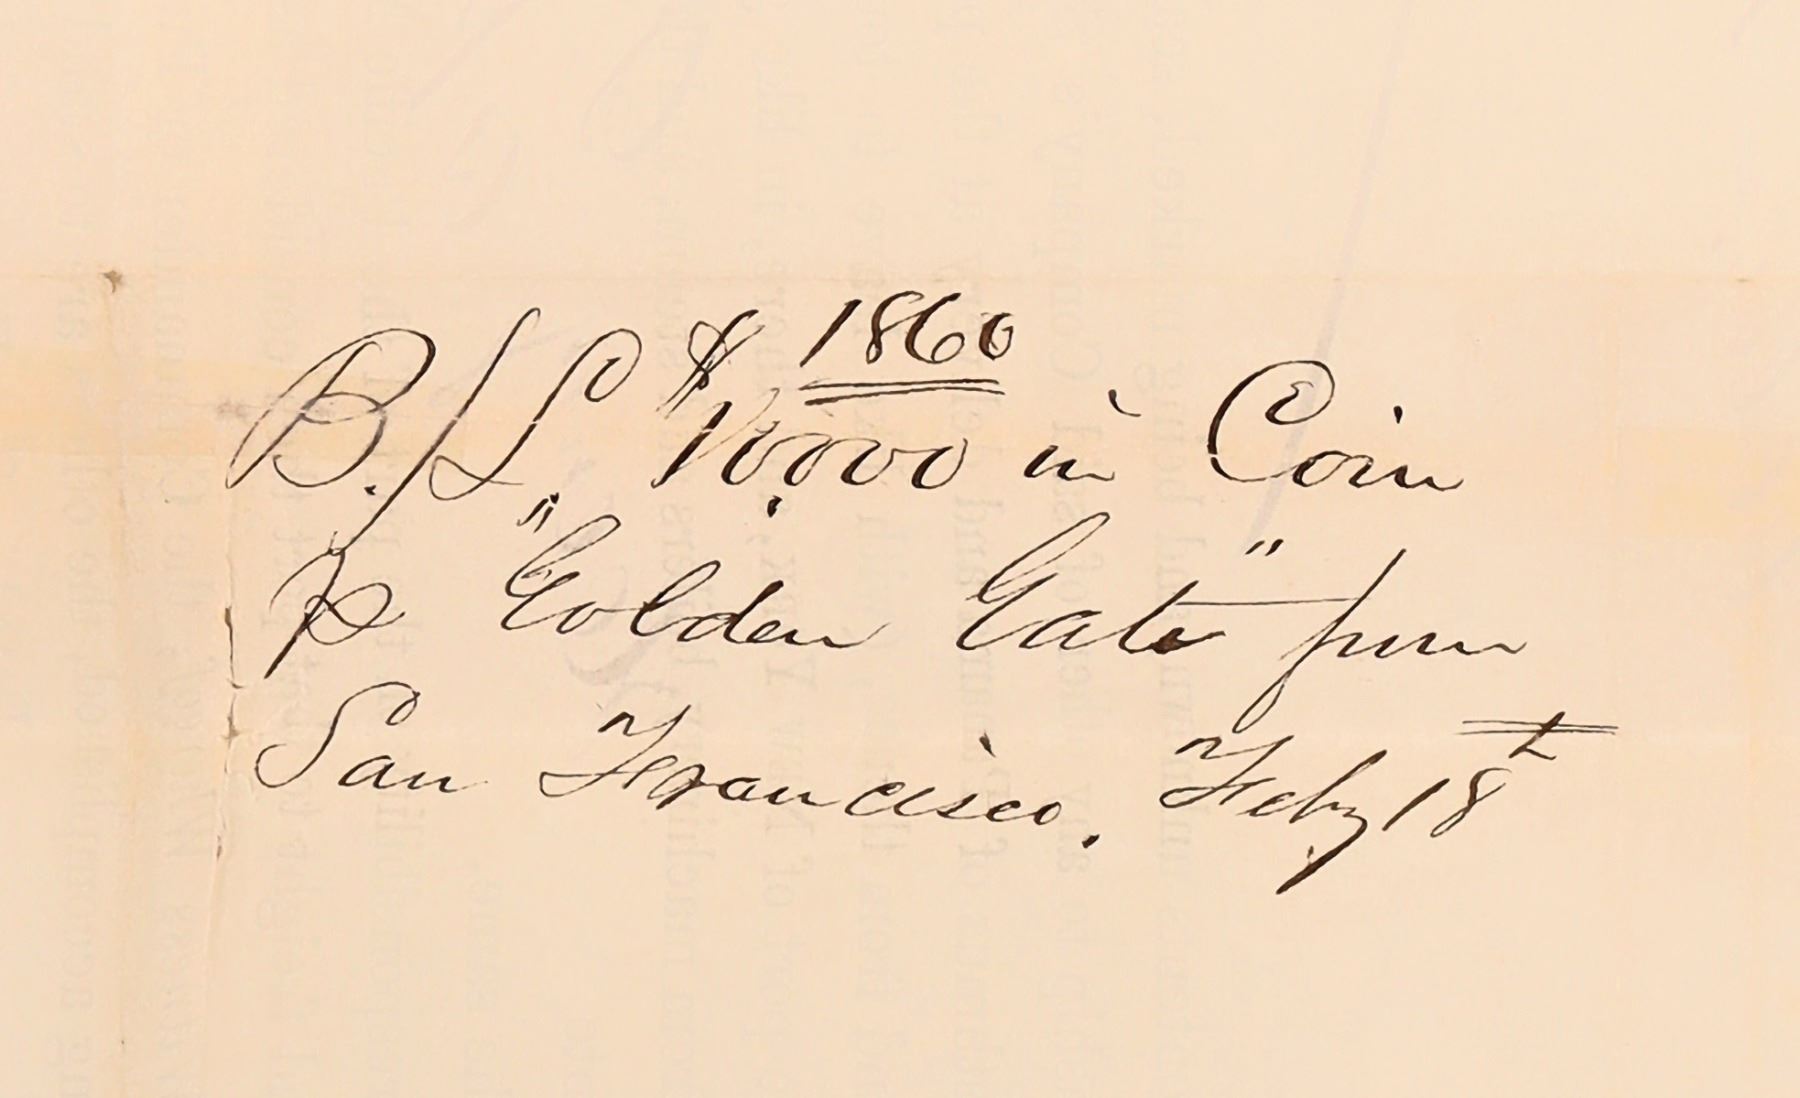 1860
B./L. $10,000 in Coin
p "Golden Gate" from
San Francisco. Feby 18th